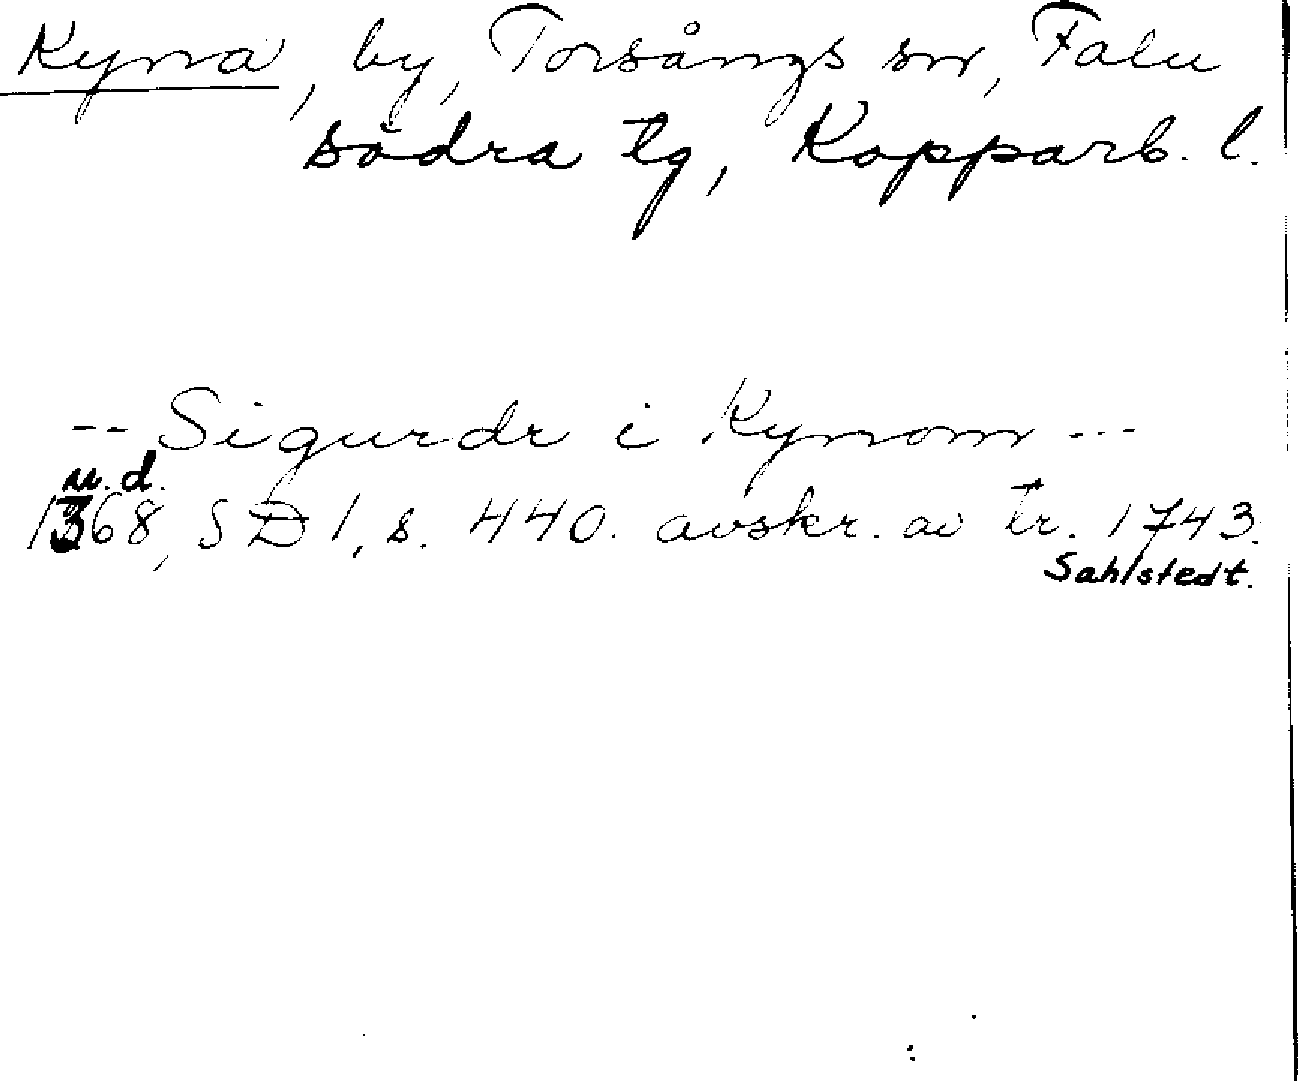 Kyna, by, Torsångs sn, Falu
södra tg, Kopparb. l.
-- Sigurdr i Kynom ---
u.d.
1368, SD 1, s. 440. avskr. av tr. 1743.
Sahlstedt.